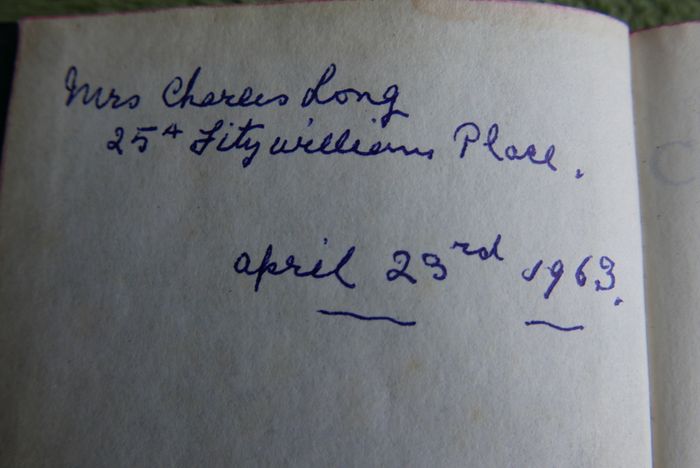 Mrs Charles Long
25A Fitzwilliam Place.
april 23rd 1963.